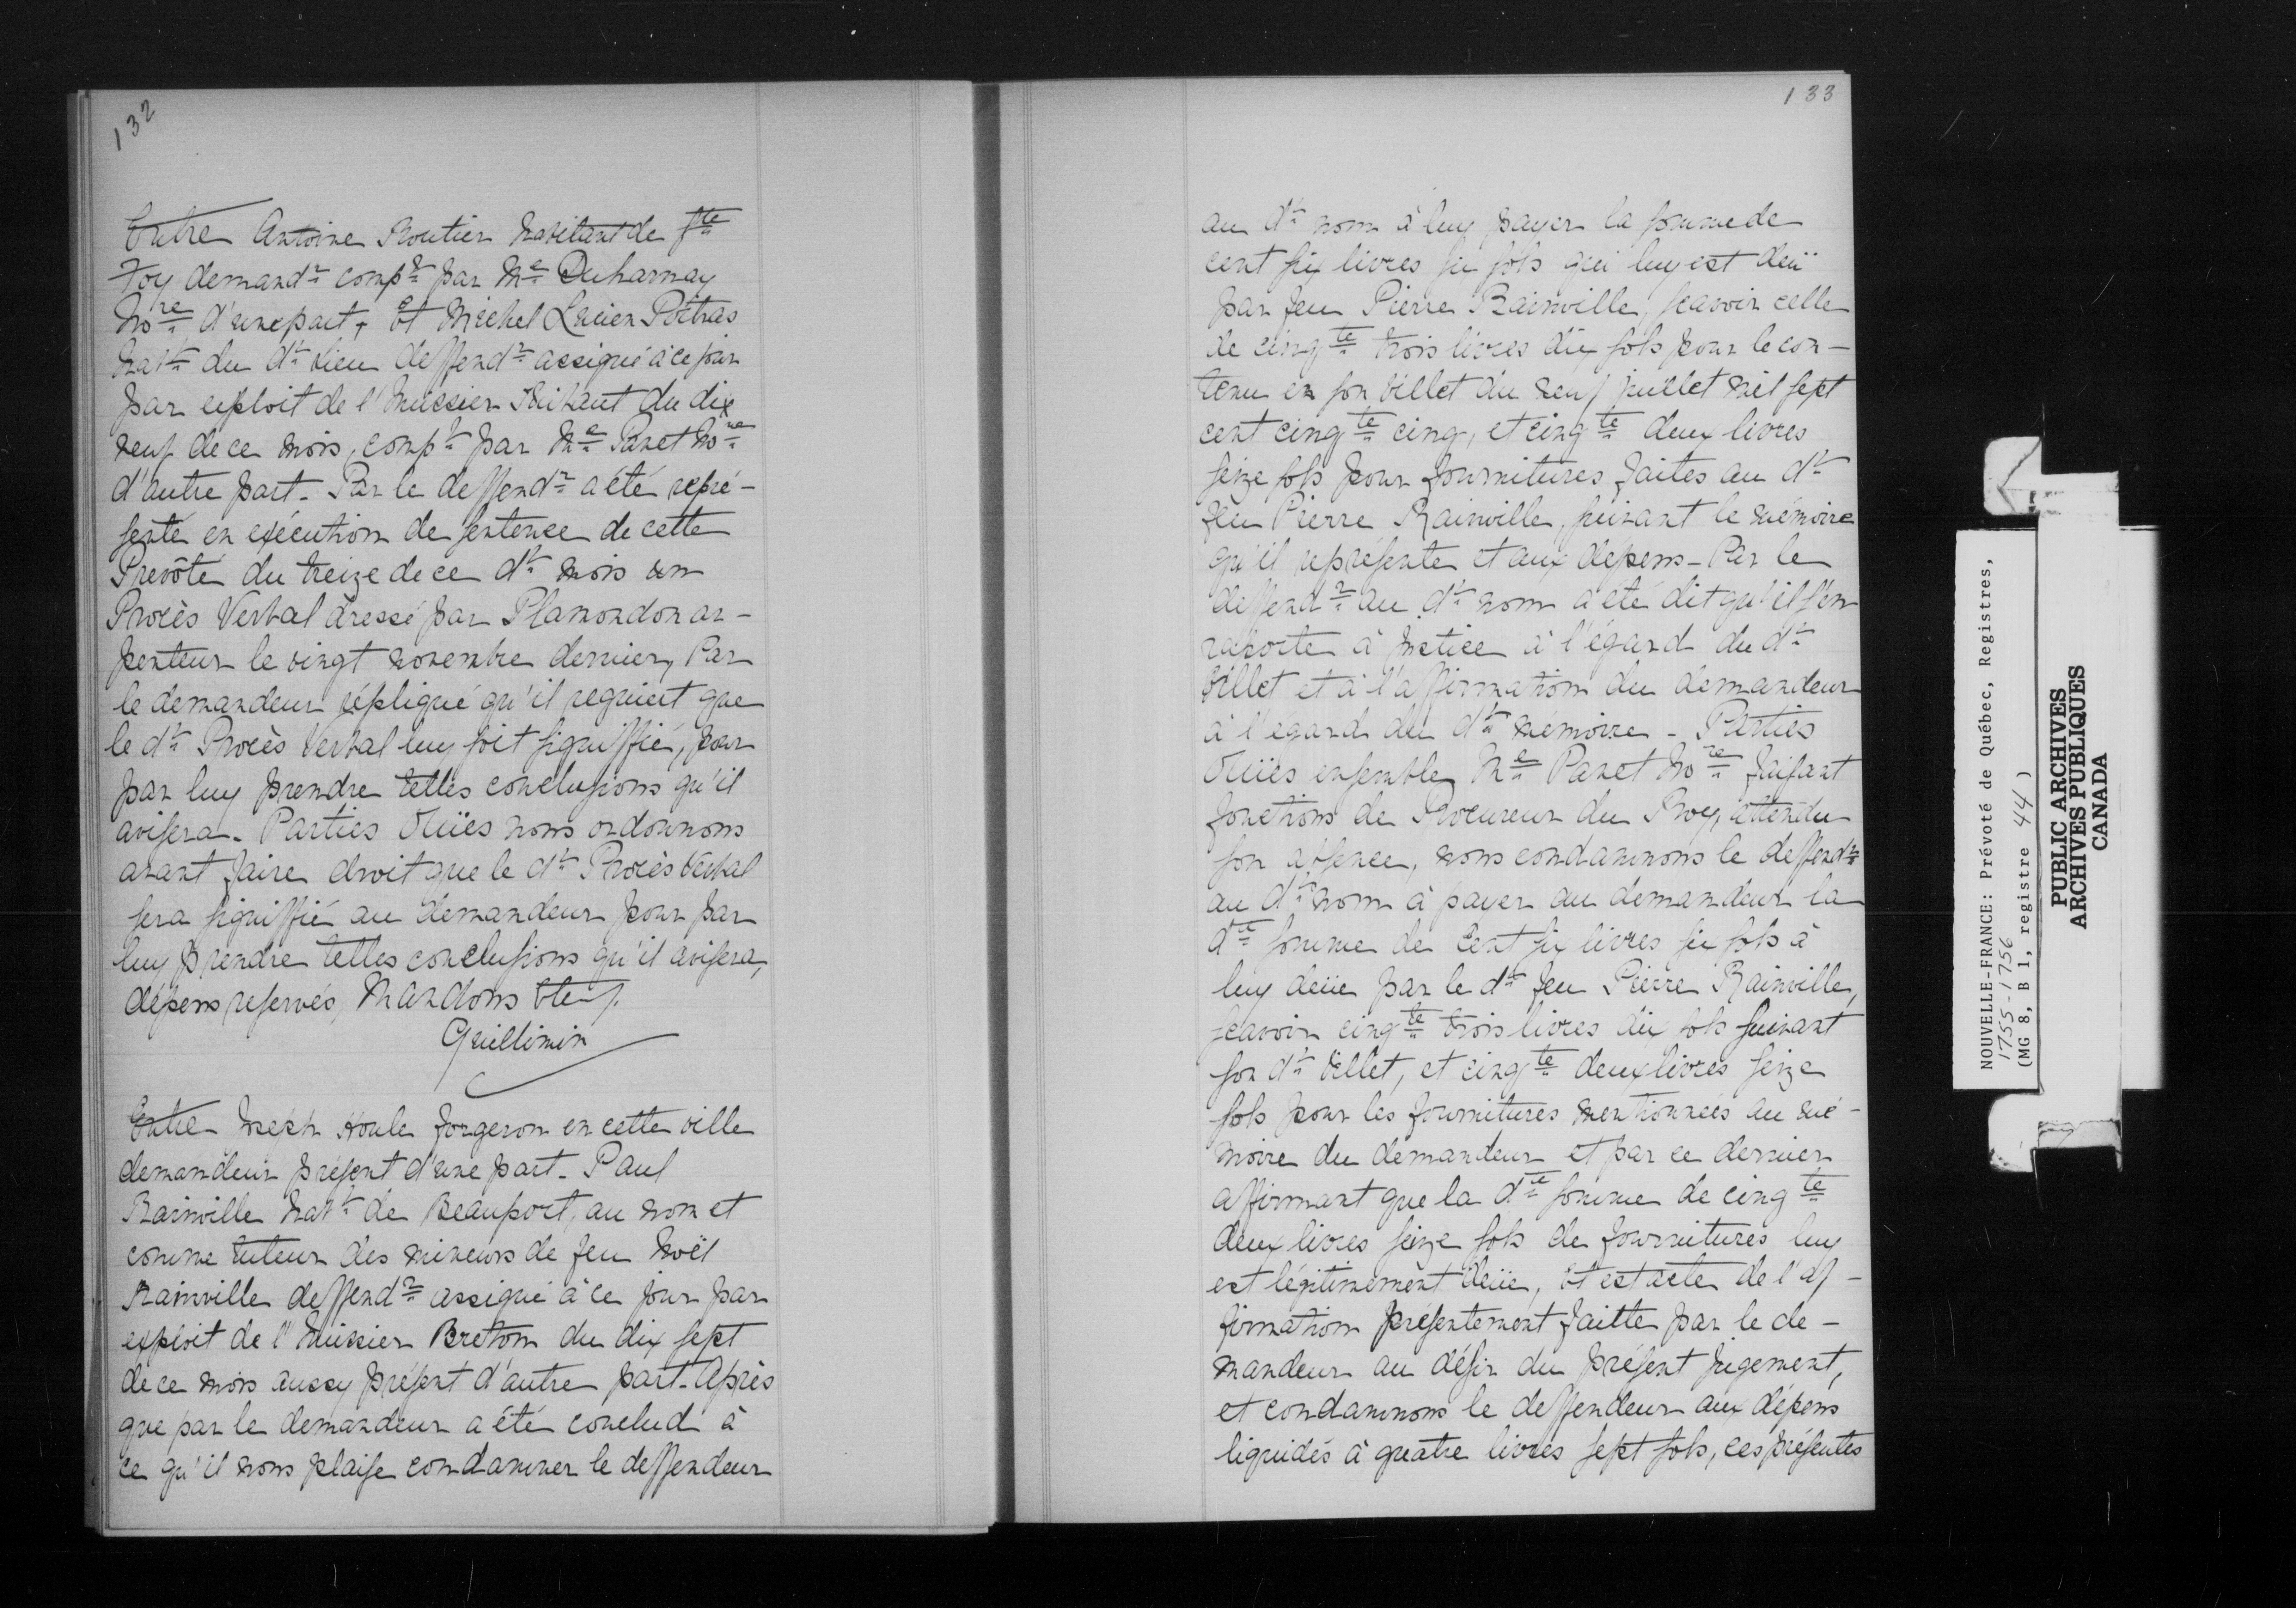 132
Entre Antoine Routier habitant de Ste
Foy demandr compt par Me Duharnay
Nore d'une part, Et Michel Lucien Poitras
habt du dt lieu deffendr assigné à ce jour
par exploit de l'huissier Thibaut du dix
neuf de ce mois, compt par Me Panet Nore
d'autre part. Par le deffendr a été repré-
senté en exécution de sentence de cette
Prevôté du treize de ce dt mois un
Procès Verbal dressé par Plamondon ar-
penteur le vingt novembre dernier, Par
le demandeur répliqué qu'il requiert que
le dt Procès Verbal luy soit signiffié, pour
par luy prendre telles conclusions qu'il
avisera. Parties Ouïes nous ordonnons
avant faire droit que le dt Procès Verbal
sera signiffié au demandeur pour par
luy prendre telles conclusions qu'il avisera,
dépens reservés, Mandons Etc/.
Guillimin
Entre Joseph Houle forgeron en cette ville
demandeur présent d'une part. Paul
Rainville habt de Beauport, au nom et
comme tuteur des mineurs de feu Noël
Rainville deffendr assigné à ce jour par
exploit de l'huissier Breton du dix sept
de ce mois aussy présent d'autre part. Après
que par le demandeur a été conclud à
ce qu'il nous plaise condamner le deffendeur
133
au dt nom à luy payer la somme de
cent six livres six sols qui luy est deuë
par feu Pierre Rainville, scavoir celle
de cinqte trois livres dix sols pour le con-
tenu en son billet du neuf juillet mil sept
cent cinqte cinq, et cinqte deux livres
seize sols pour fournitures faites au dt
feu Pierre Rainville, suivant le mémoire
qu'il représente et aux dépens. Par le
deffendr au dt nom a été dit qu'il s'en
raporte à justice à l'égard du dt
billet et à l'affirmation du demandeur
à l'egard du dt mémoire. Parties
Ouïes ensemble Me Panet Nore faisant
fonctions de Procureur du Roy, attendu
son absence, nous condamnons le deffendr
au dt nom à payer au demandeur la
dte somme de cent six livres six sols à
luy deüe par le dt feu Pierre Rainville,
scavoir cinqte trois livres dix sols suivant
son dt billet, et cinqte deux livres seize
sols pour les fournitures mentionnées au mé-
moire du demandeur et par ce dernier
affirmant que la dte somme de cinqte
deux livres seize sols de fournitures luy
est légitimement deüe, Et est acte de l'af-
firmation présentement faitte par le de-
mandeur au désir du présent jugement,
et condamnons le deffendeur aux dépens
liquidés à quatre livres sept sols, ces présentes
NOUVELLE-FRANCE: Prévoté de Québec, Registres,
1755-1756
(MG 8, B 1, registre 44)
PUBLIC ARCHIVES
ARCHIVES PUBLIQUES
CANADA